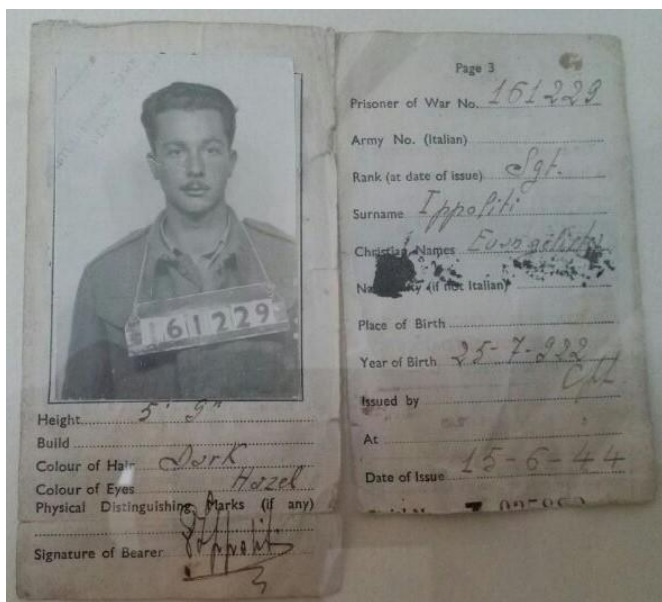 161229
Height 5' 9"
Build
Colour of Hair Dark
Colour of Eyes Hazel
Physical Distinguishing Marks (if any)
Signature of Bearer Ippoliti
Page 3
Prisoner of War No. 161229
Army No. (Italian)
Rank (at date of issue) Sgt.
Surname Ippoliti
Christian Names Evangelista
(if not Italian)
Place of Birth
Year of Birth 25-7-922
Issued by
At
Date of Issue 15-6-44